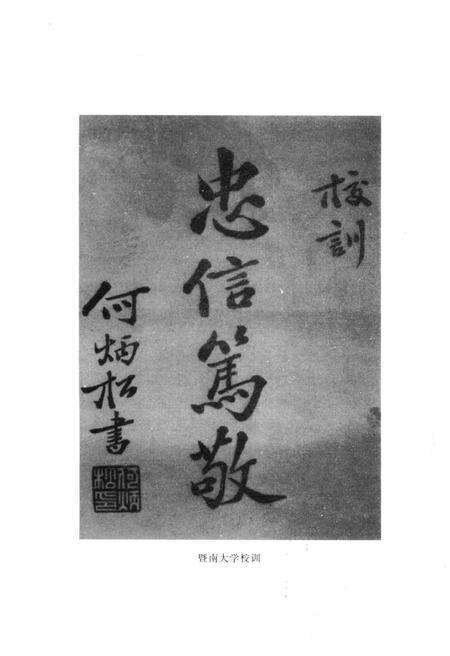 校訓
忠信篤敬
何炳松書
何炳松印
暨南大学校训